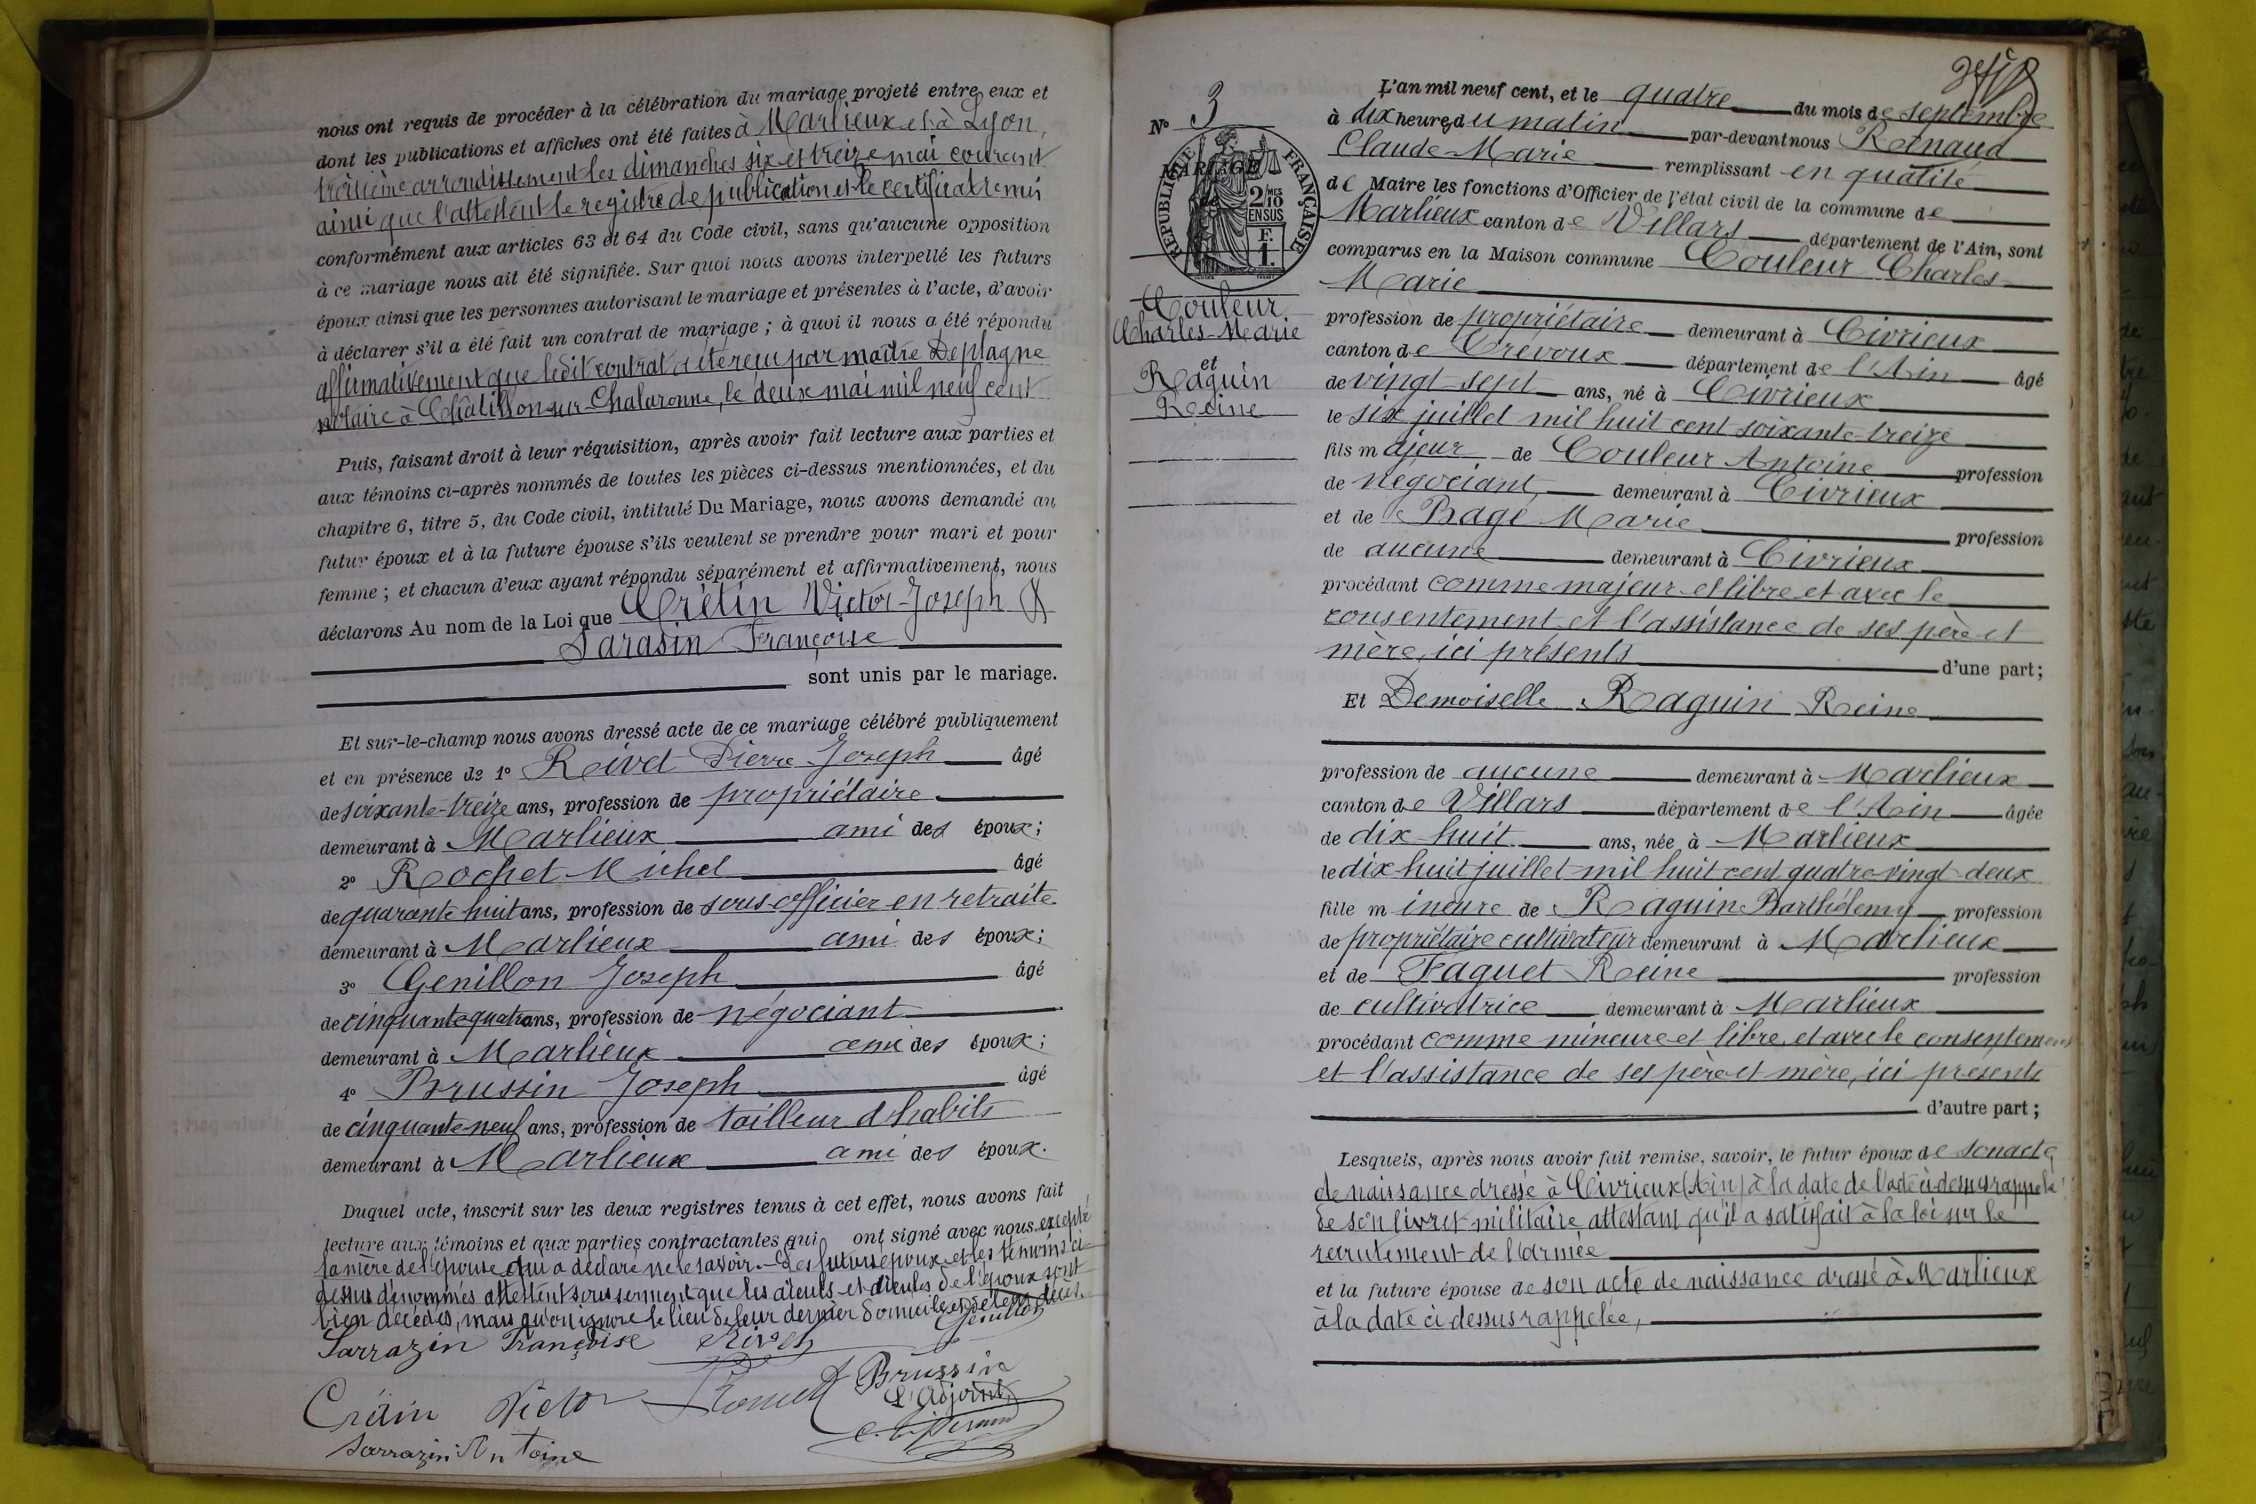 nous ont requis de procéder à la célébration du mariage projeté entre eux et
dont les publications et affiches ont été faites à Marlieux et à Lyon,
troisième arrondissement les dimanches six et treize mai courant
ainsi que l'attestent le registre de publication et le certificat remis
conformément aux articles 63 et 64 du Code civil, sans qu'aucune opposition
à ce mariage nous ait été signifiée. Sur quoi nous avons interpellé les futurs
époux ainsi que les personnes autorisant le mariage et présentes à l'acte, d'avoir
à déclarer s'il a été fait un contrat de mariage ; à quoi il nous a été répondu
affirmativement que ledit contrat a été reçu par maître Deplagne
notaire à Châtillon-sur-Chalaronne, le deux mai mil neuf cent
Puis, faisant droit à leur réquisition, après avoir fait lecture aux parties et
aux témoins ci-après nommés de toutes les pièces ci-dessus mentionnées, et du
chapitre 6, titre 5, du Code civil, intitulé Du Mariage, nous avons demandé au
futur époux et à la future épouse s'ils veulent se prendre pour mari et pour
femme ; et chacun d'eux ayant répondu séparément et affirmativement, nous
déclarons Au nom de la Loi que Crétin Victor-Joseph &
Sarasin Françoise
sont unis par le mariage.
Et sur-le-champ nous avons dressé acte de ce mariage célébré publiquement
et en présence de 1° Rivet Pierre Joseph âgé
de soixante-treize ans, profession de propriétaire
demeurant à Marlieux ami des époux ;
2° Rochet Michel âgé
de quarante huit ans, profession de sous-officier en retraite
demeurant à Marlieux ami des époux ;
3° Genillon Joseph âgé
de cinquante quatre ans, profession de négociant
demeurant à Marlieux ami des époux ;
4° Brussin Joseph âgé
de cinquante-neuf ans, profession de tailleur d'habits
demeurant à Marlieux ami des époux.
Duquel acte, inscrit sur les deux registres tenus à cet effet, nous avons fait
lecture aux témoins et aux parties contractantes qui ont signé avec nous excepté
la mère de l'épouse qui a déclaré ne le savoir. Les futurs époux et les témoins ci-
dessus dénommés attestent sous serment que les aïeuls et aïeules de l'époux sont
bien décédés, mais qu'on ignore le lieu de leur dernier domicile et de leur décès.
Genillon
Sarrazin Françoise Rivet
Crétin Victor Rochet Brussin
L'Adjoint
Sarrazin Antoine
N° 3
MARIAGE
de
RÉPUBLIQUE FRANÇAISE
2 MES 10
EN SUS
F.
1.
Couleur
Charles-Marie
et
Raguin
Reine
L'an mil neuf cent, et le quatre du mois de septembre
à dix heures du matin par-devant nous Renaud
Claude-Marie remplissant en qualité
de Maire les fonctions d'Officier de l'état civil de la commune de
Marlieux canton de Villars département de l'Ain, sont
comparus en la Maison commune Couleur Charles-
Marie
profession de propriétaire demeurant à Civrieux
canton de Trévoux département de l'Ain âgé
de vingt-sept ans, né à Civrieux
le six juillet mil huit cent soixante-treize
fils majeur de Couleur Antoine profession
de négociant, demeurant à Civrieux
et de Bagé Marie profession
de aucune demeurant à Civrieux
procédant comme majeur et libre et avec le
consentement et l'assistance de ses père et
mère, ici présents d'une part ;
Et Demoiselle Raguin Reine
profession de aucune demeurant à Marlieux
canton de Villars département de l'Ain âgée
de dix-huit ans, née à Marlieux
le dix-huit juillet mil huit cent quatre-vingt-deux
fille mineure de Raguin Barthélemy profession
de propriétaire cultivateur demeurant à Marlieux
et de Faguet Reine profession
de cultivatrice demeurant à Marlieux
procédant comme mineure et libre, et avec le consentement
et l'assistance de ses père et mère, ici présents
d'autre part ;
Lesquels, après nous avoir fait remise, savoir, le futur époux de son acte
de naissance dressé à Civrieux (Ain) à la date de l'acte ci-dessus rappelé
de son livret militaire attestant qu'il a satisfait à la loi sur le
recrutement de l'armée
et la future épouse de son acte de naissance dressé à Marlieux
à la date ci dessus rappelée,